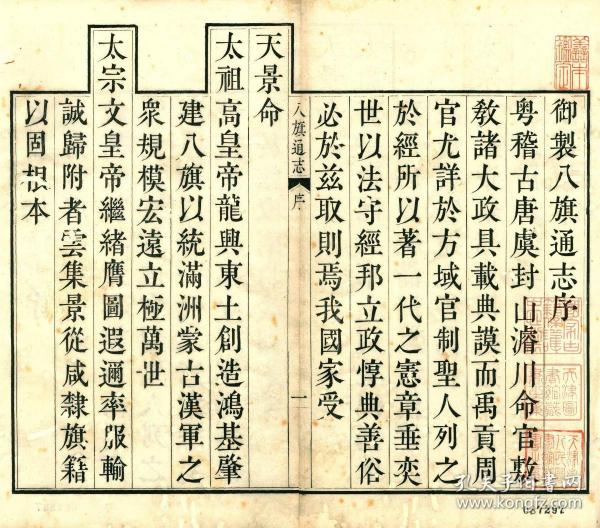 御製八旗通志序
粤稽古唐虞封山濬川命官敷
敎諸大政具載典謨而禹貢周
官尤詳於方域官制聖人列之
於經所以著一代之憲章垂奕
世以法守經邦立政惇典善俗
必於兹取則焉我國家受
八旗通志
序
一
天景命
太祖高皇帝龍興東土創造鴻基肇
建八旗以統滿洲蒙古漢軍之
衆規模宏遠立極萬世
太宗文皇帝繼緒膺圖遐邇率服輸
誠歸附者雲集景從咸隸旗籍
以固根本
孔夫子旧书网
kongfz.com